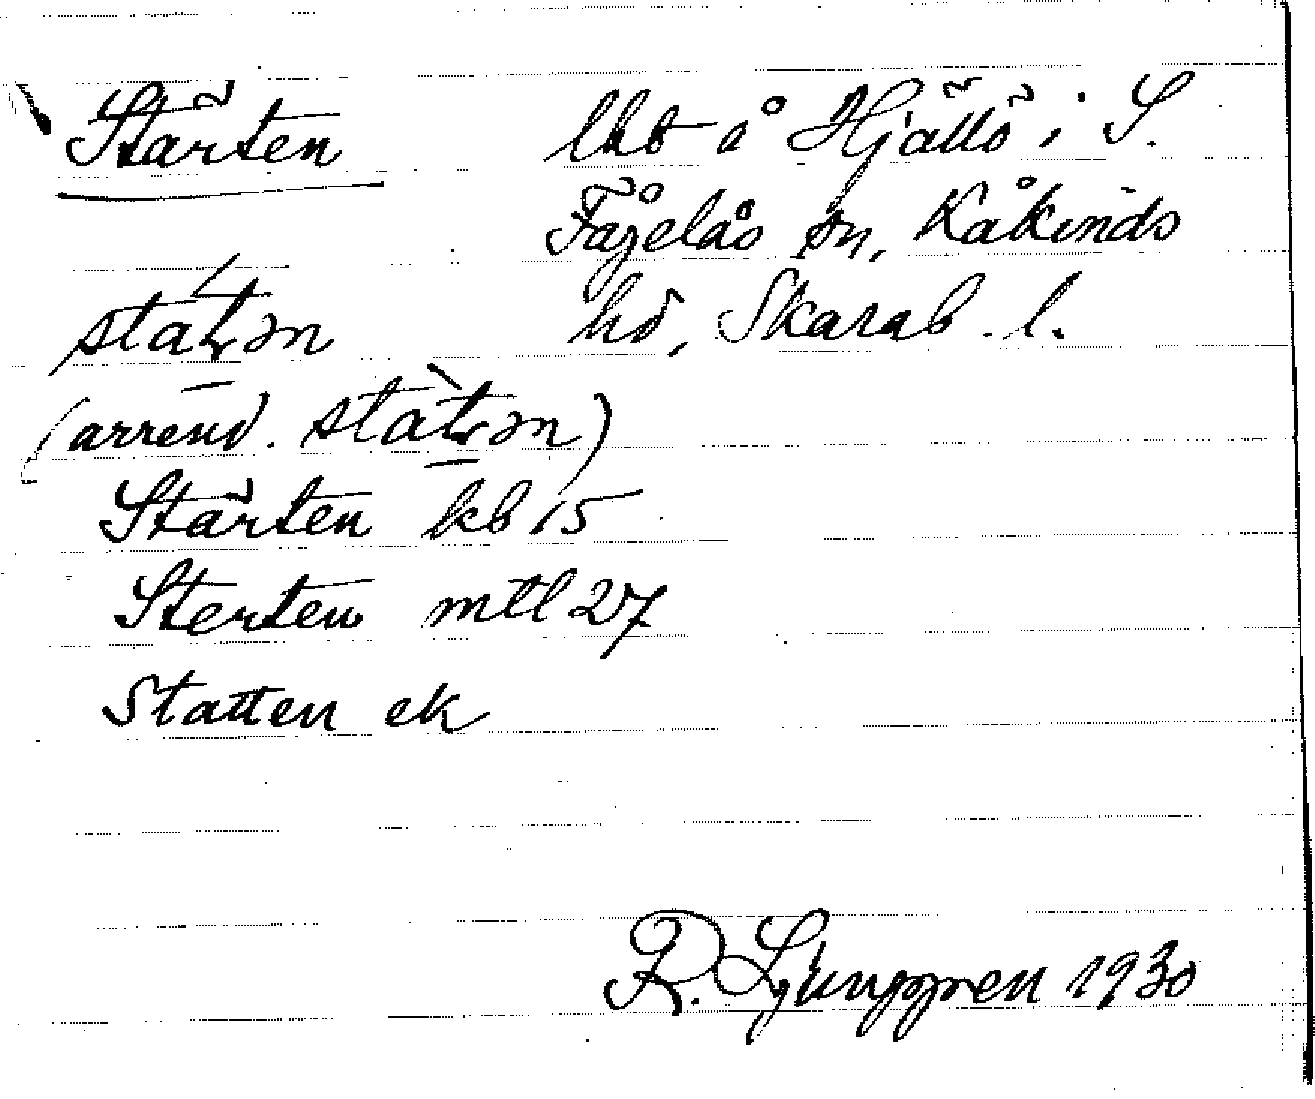 Stärten
lht å Hjällö i S.
Fågelås sn, Kåkinds
hd, Skarab. l.
(arrend.
Stärten kb 15
Sterten mtl 27
Statten ek
R. Ljunggren 1930